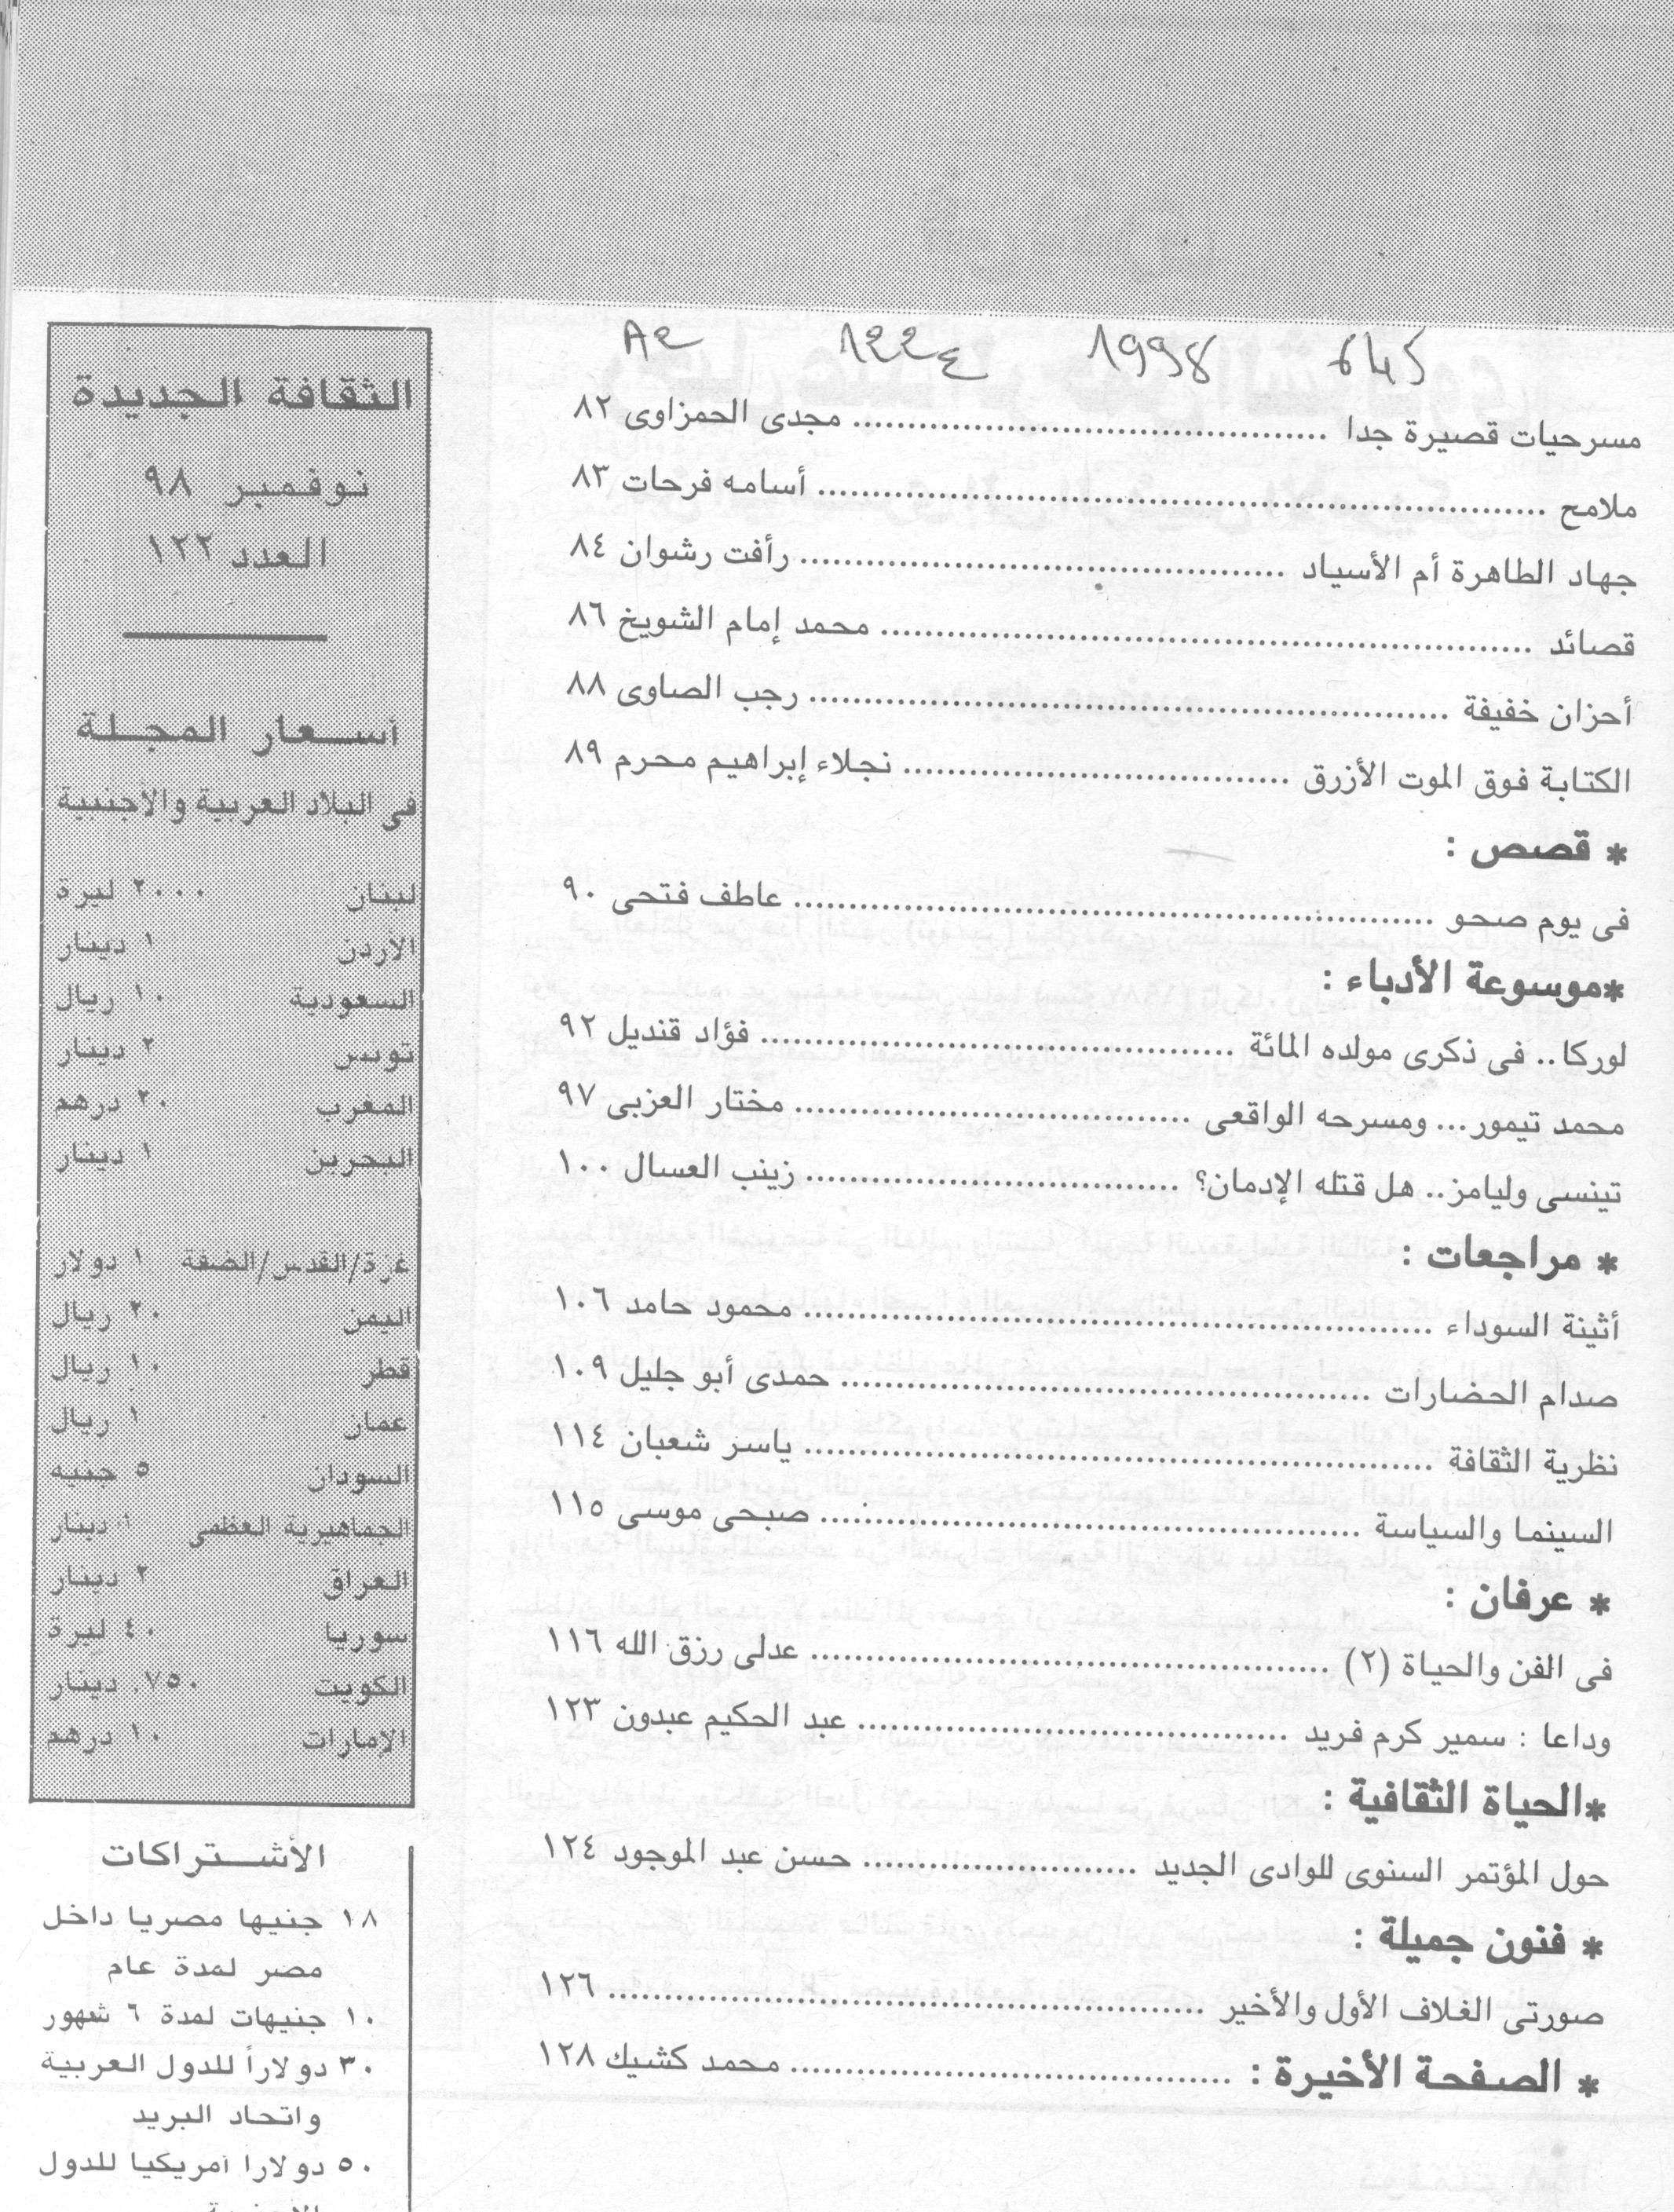 A2 122ع 1998 645
مسرحيات قصيرة جدا ........ مجدى الحمزاوى ٨٢
ملامح ........ أسامه فرحات ٨٣
جهاد الطاهرة أم الأسياد ........ رأفت رشوان ٨٤
قصائد ........ محمد إمام الشويخ ٨٦
أحزان خفيفة ........ رجب الصاوى ٨٨
الكتابة فوق الموت الأزرق ........ نجلاء إبراهيم محرم ٨٩
* قصص :
فى يوم صحو ........ عاطف فتحى ٩٠
*موسوعة الأدباء :
لوركا.. فى ذكرى مولده المائة ........ فؤاد قنديل ٩٢
محمد تيمور... ومسرحه الواقعى ........ مختار العزبى ٩٧
تينسى وليامز.. هل قتله الإدمان؟ ........ زينب العسال ١٠٠
* مراجعات :
أثينة السوداء ........ محمود حامد ١٠٦
صدام الحضارات ........ حمدى أبو جليل ١٠٩
نظرية الثقافة ........ ياسر شعبان ١١٤
السينما والسياسة ........ صبحى موسى ١١٥
* عرفان :
فى الفن والحياة (٢) ........ عدلى رزق الله ١١٦
وداعا : سمير كرم فريد ........ عبد الحكيم عبدون ١٢٣
*الحياة الثقافية :
حول المؤتمر السنوى للوادى الجديد ........ حسن عبد الموجود ١٢٤
* فنون جميلة :
صورتى الغلاف الأول والأخير ........ ١٢٦
* الصفحة الأخيرة : ........ محمد كشيك ١٢٨
الثقافة الجديدة
نوفمبر ٩٨
العدد ١٢٢
أسعار المجلة
فى البلاد العربية والاجنبية
لبنان ٢٠٠٠ ليرة
الأردن ١ دينار
السعودية ١٠ ريال
تونس ٢ دينار
المغرب ٢٠ درهم
البحرين ١ دينار
غزة/القدس/الضفة ١ دولار
اليمن ٢٠ ريال
قطر ١٠ ريال
عمان ١ ريال
السودان ٥ جنيه
الجماهيرية العظمى ١ دينار
العراق ٢ دينار
سوريا ٤٠ ليرة
الكويت ٧٥٠, دينار
الإمارات ١٠ درهم
الأشتراكات
١٨ جنيها مصريا داخل
مصر لمدة عام
١٠ جنيهات لمدة ٦ شهور
٣٠ دولاراً للدول العربية
واتحاد البريد
٥٠ دولارا أمريكيا للدول